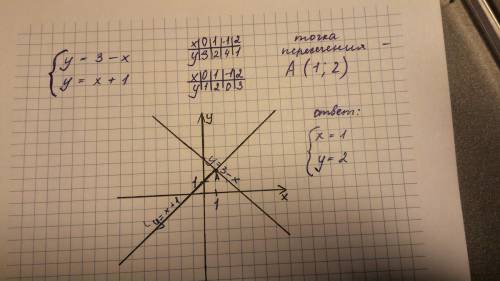 { y = 3 - x
y = x + 1
x | 0 | 1 | -1 | 2
y | 3 | 2 | 4 | 1
x | 0 | 1 | -1 | 2
y | 1 | 2 | 0 | 3
точка
пересечения -
A (1; 2)
ответ:
{ x = 1
y = 2
y
y=3-x
1
y=x+1
1
x